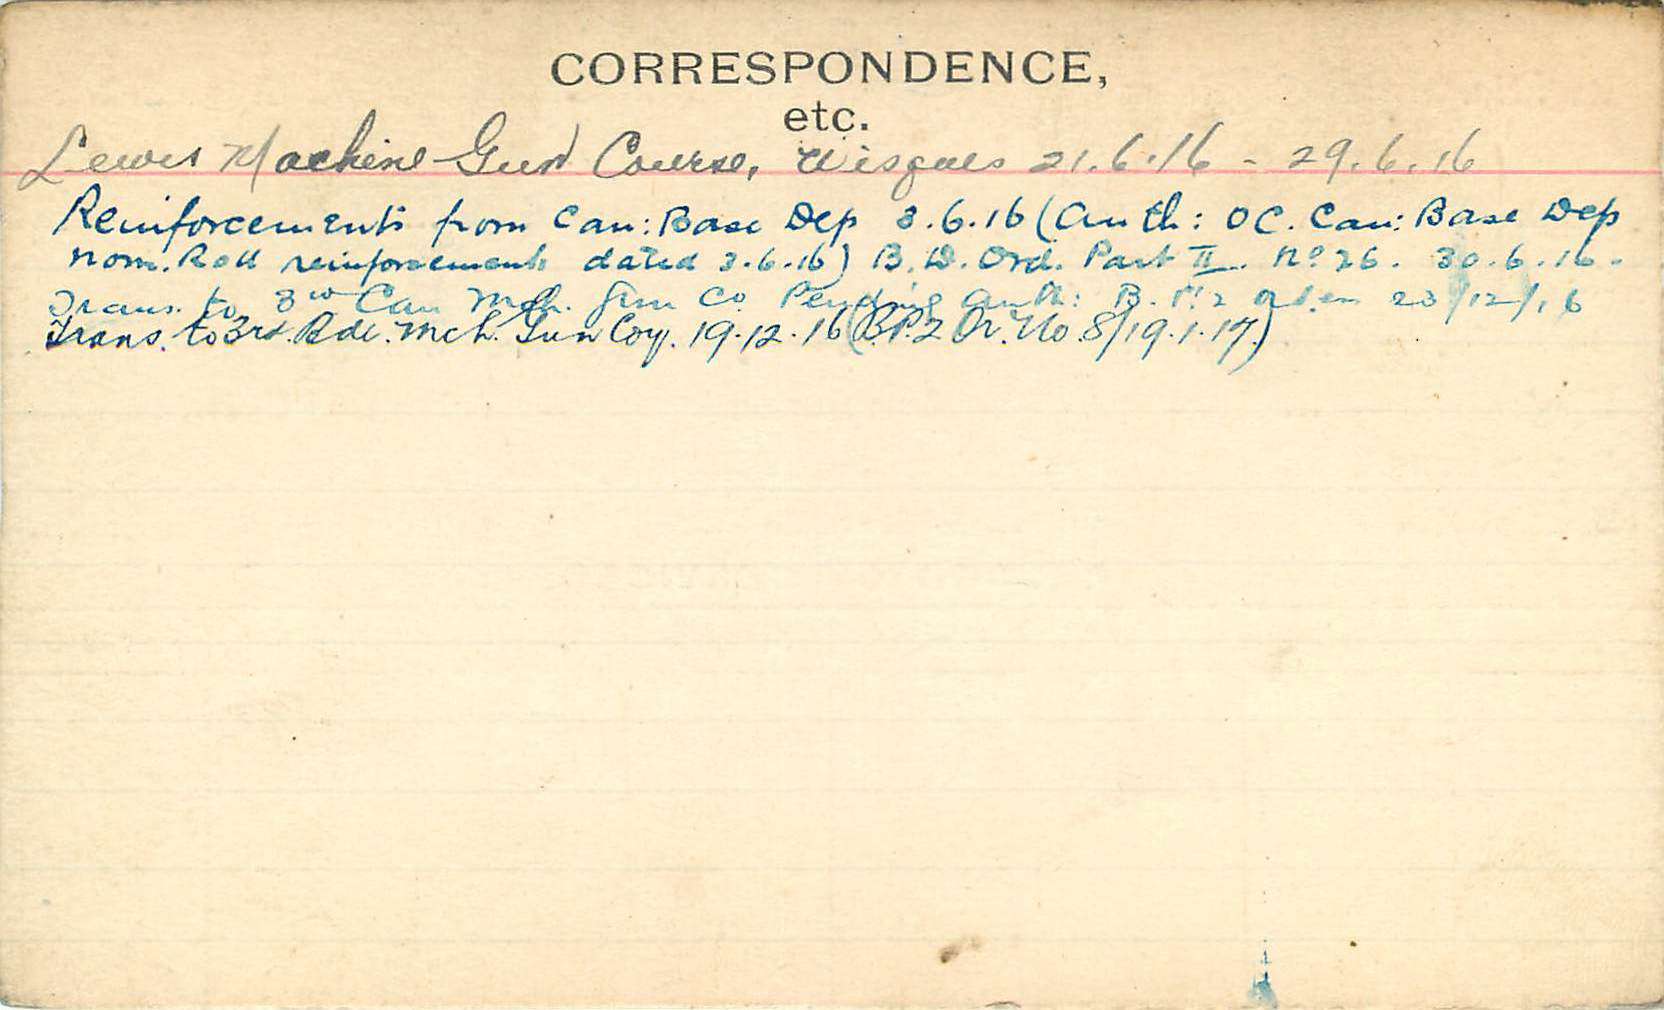 CORRESPONDENCE,
etc.
Lewis Machine Gun Course, Wisques 21.6.16 - 29.6.16
Reinforcements from Can: Base Dep 3.6.16 (Auth: OC. Can: Base Dep
nom. Roll reinforcements dated 3.6.16) B.D. Ord. Part II. No 26. 30.6.16.
Trans. to 3rd Can Mch. Gun Co Pending Auth: B. Pt 2 Orden 23/12/16
Trans. to 3rd. Bde. Mch. Gun Coy. 19.12.16 (B.P.2 Or. No 8/19.1.17)